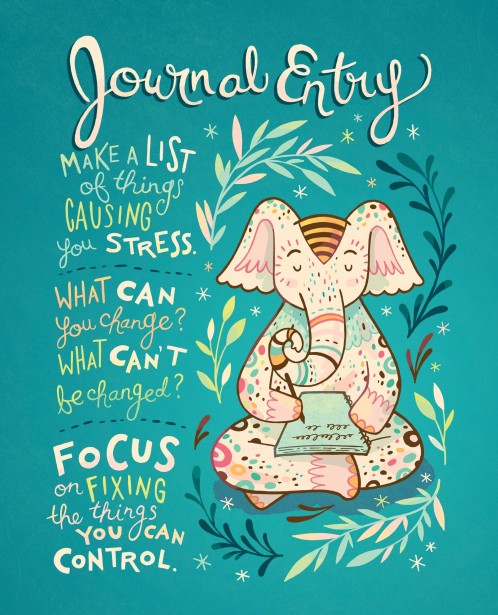 Journal Entry
MAKE A LIST
of things
CAUSING
you STRESS.
WHAT CAN
you change?
WHAT CAN'T
be changed?
FOCUS
on FIXING
the things
YOU CAN
CONTROL.